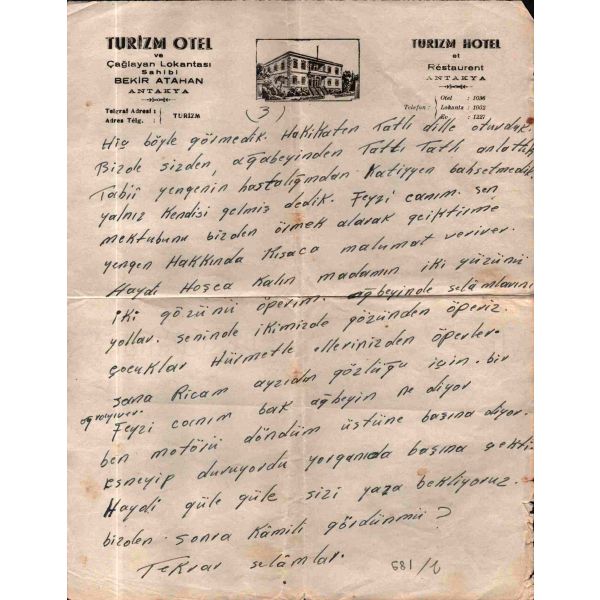 TURİZM OTEL
ve
Çağlayan Lokantası
Sahibi
BEKİR ATAHAN
ANTAKYA
Telgraf Adresi :
Adres Télg. :
TURİZM
TURIZM HOTEL
et
Réstaurent
ANTAKYA
Telefon :
Otel : 1036
Lokanta : 1002
Ev : 1227
(3)
Hiç böyle görmedik. Hakikaten Tatlı dille oturduk.
Bizde sizden, ağabeyinden Tatlı Tatlı anlattık
Tabiî yengenin hastalığından Katiyyen bahsetmedik
yalnız Kendisi gelmiş dedik. Feyzi canım. sen
mektubunu bizden örnek alarak geciktirme
yengen Hakkında Kısaca malumat veriver.
Haydi Hoşca Kalın madamın iki yüzünü
iki gözünü öperim. ağbeyinde selâmlarını
yollar. seninde ikimizde gözünden öperiz.
çocuklar Hürmetle ellerinizden öperler.
sana Ricam gözlüğü için. bir
Feyzi canım bak ağbeyin ne diyor
ben motörü döndüm üstüne başına diyor.
Esneyip duruyordu yorganıda başına çekti.
Haydi güle güle sizi yaza bekliyoruz.
bizden sonra Kâmili gördünmü?
Tekrar selâmlar.
681/2